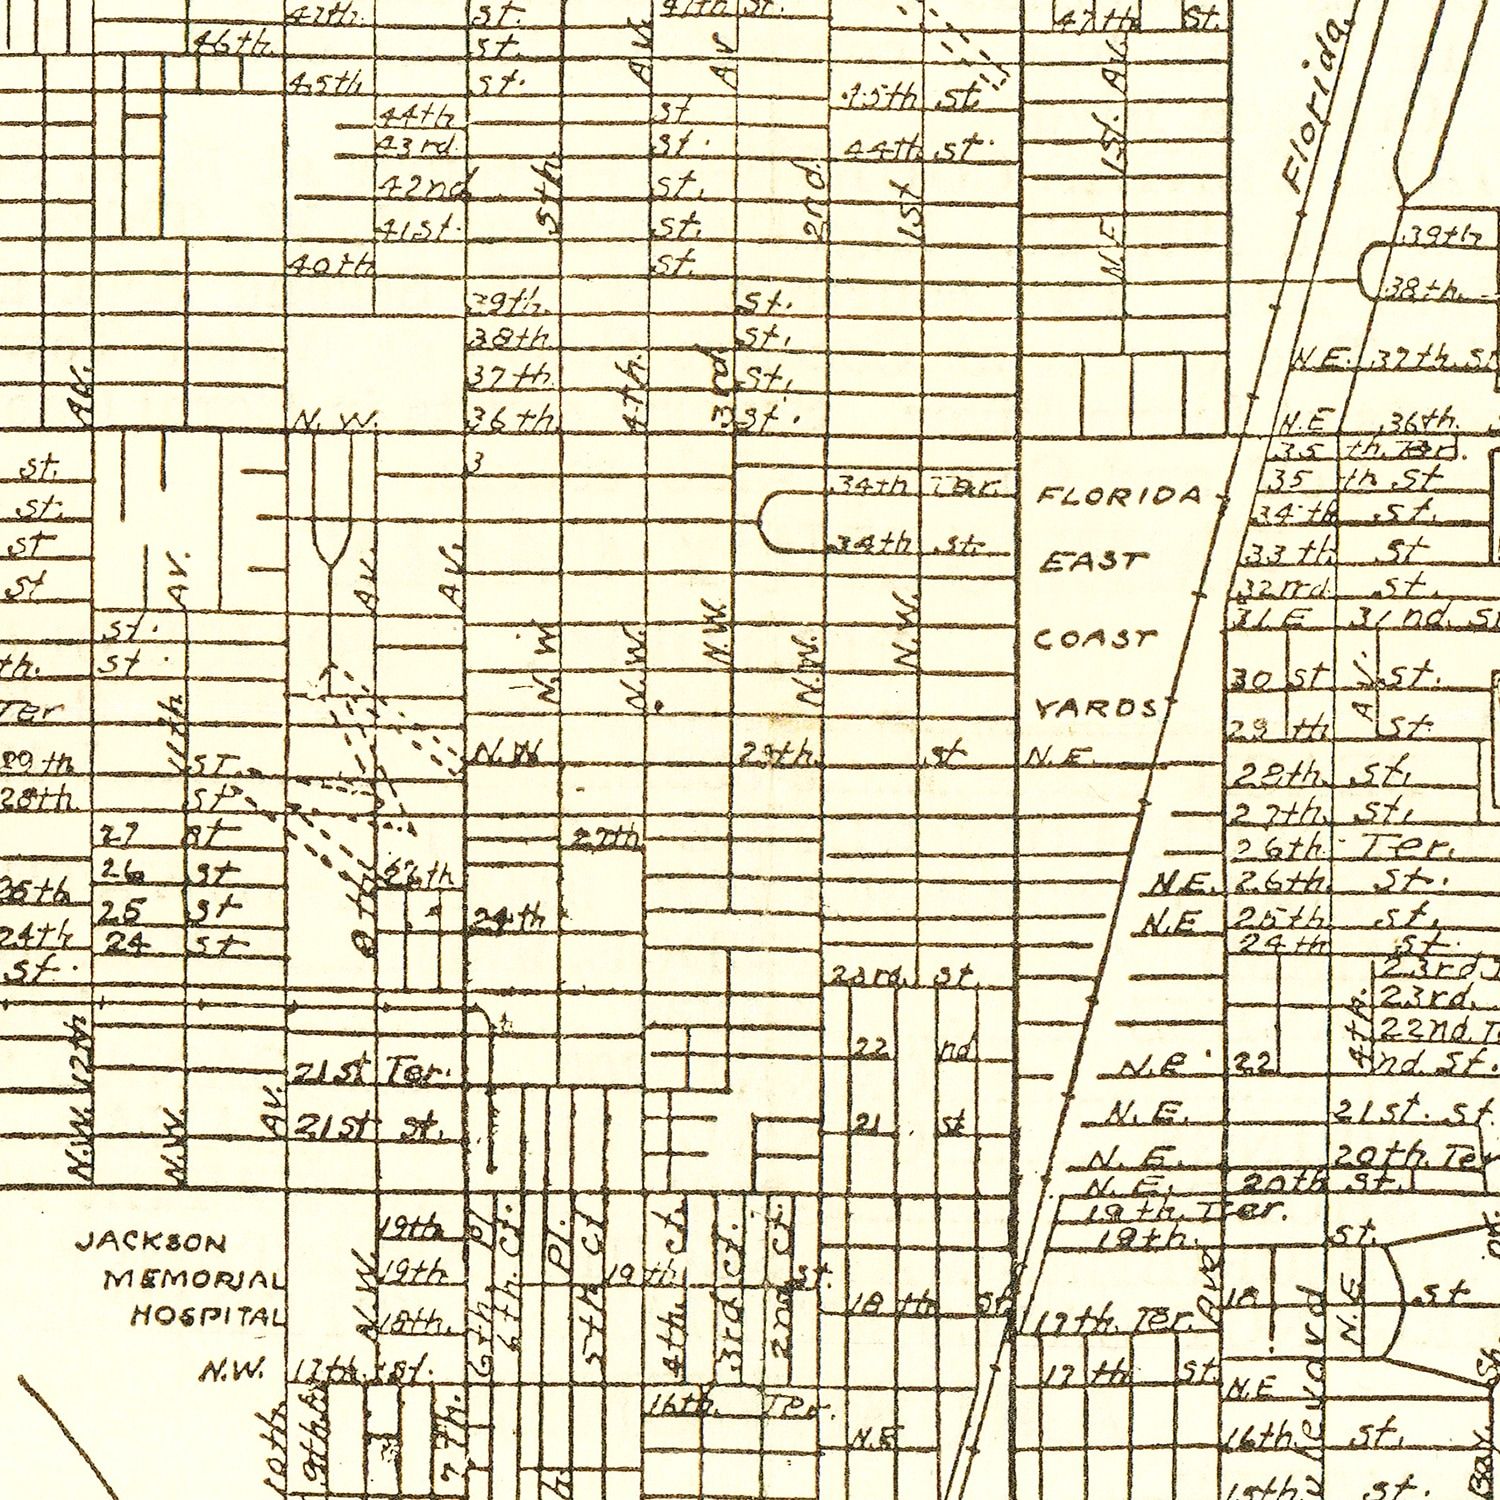 47th. St. 47th St. 47th St.
46th. St.
45th St. 45th St.
44th St 44th St.
43rd. St.
42nd St.
41st. St.
40th St.
39th. St.
38th St.
37th St.
N. W. 36th St.
Av.
Av.
Av
5th
4th.
3rd
2nd
1st
N.E. 1st. Av.
Florida
39th
38th.
N.E. 37th. St
N.E 36th.
35 th. Ter.
35 th St
34th St.
33 th St
32nd St.
31 E 31 nd. St
30 St St.
29 th St.
28th. St.
27th. St.
26th Ter.
N.E. 26th St.
N.E 25th St.
24th St.
23rd
23rd.
22nd.
N.E. 22 nd. St.
N.E. 21st. St.
N.E. 20th. Ter
N.E. 20th St.
19th. Ter.
19th. St.
18 St
17th. Ter.
17 th St.
N.E
16th St.
15th St.
34th Ter.
34th St.
FLORIDA
EAST
COAST
YARDS
N.E.
St.
St.
St
St
St.
th. St.
Ter
29th St.
28th. St
27 St
26 St
25th 25 St
24th 24 St
St.
11th Av.
8th Av.
Av.
N.W.
N.W.
N.W.
N.W.
N.W.
N.W 29th. St
27th
26th
24th
23rd. St.
22 nd
21 St
21st Ter.
21st St.
N.W. 12th
N.W.
Av.
JACKSON
MEMORIAL
HOSPITAL
N.W. 17th. St.
N.W.
19th
19th 19 th St.
18th. 18 th St.
6th. Pl.
6th. Ct.
Pl.
5th Ct
4th. Ct.
3rd Ct.
2nd Ct.
16th. Ter.
N.E
10th.
9th
7th.
4th.
Av.
Ave
N.E